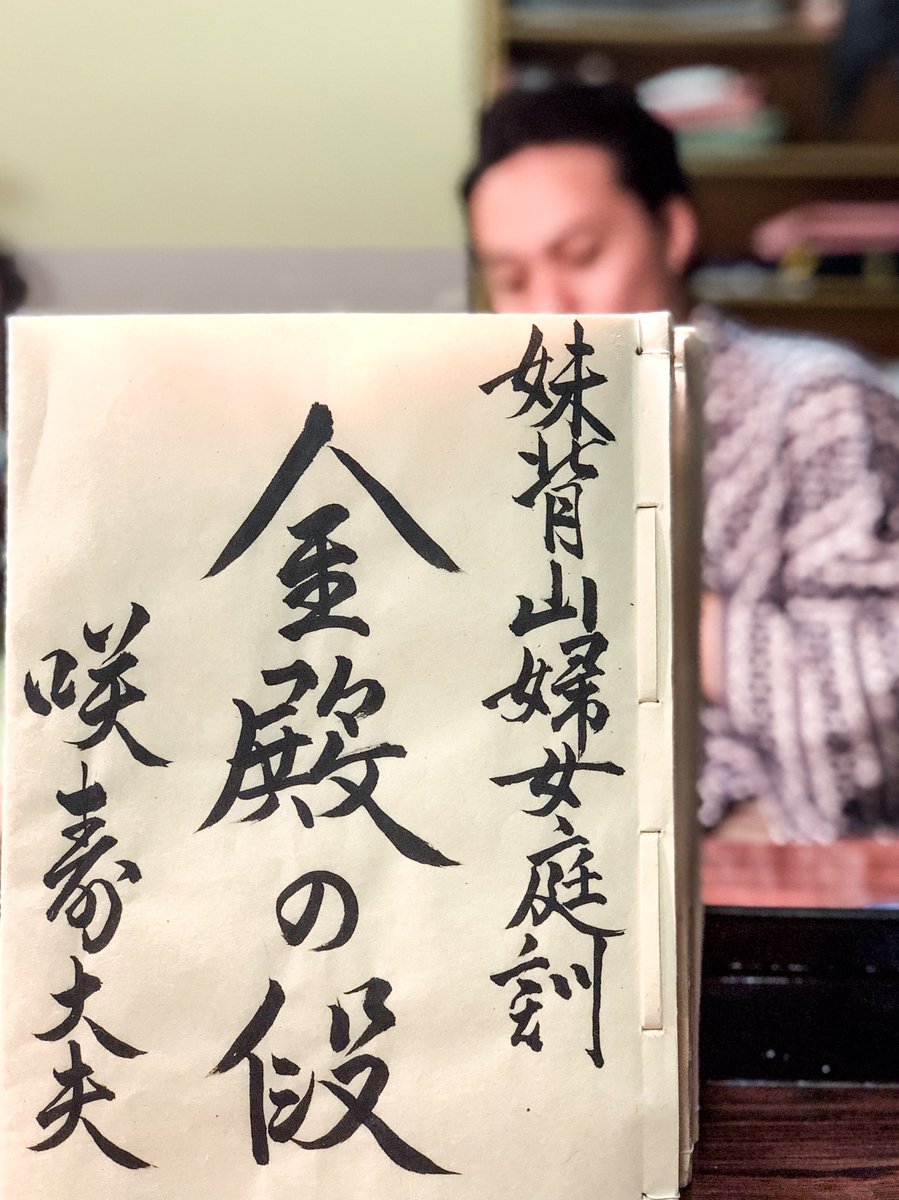 妹背山婦女庭訓
金殿の段
咲寿大夫